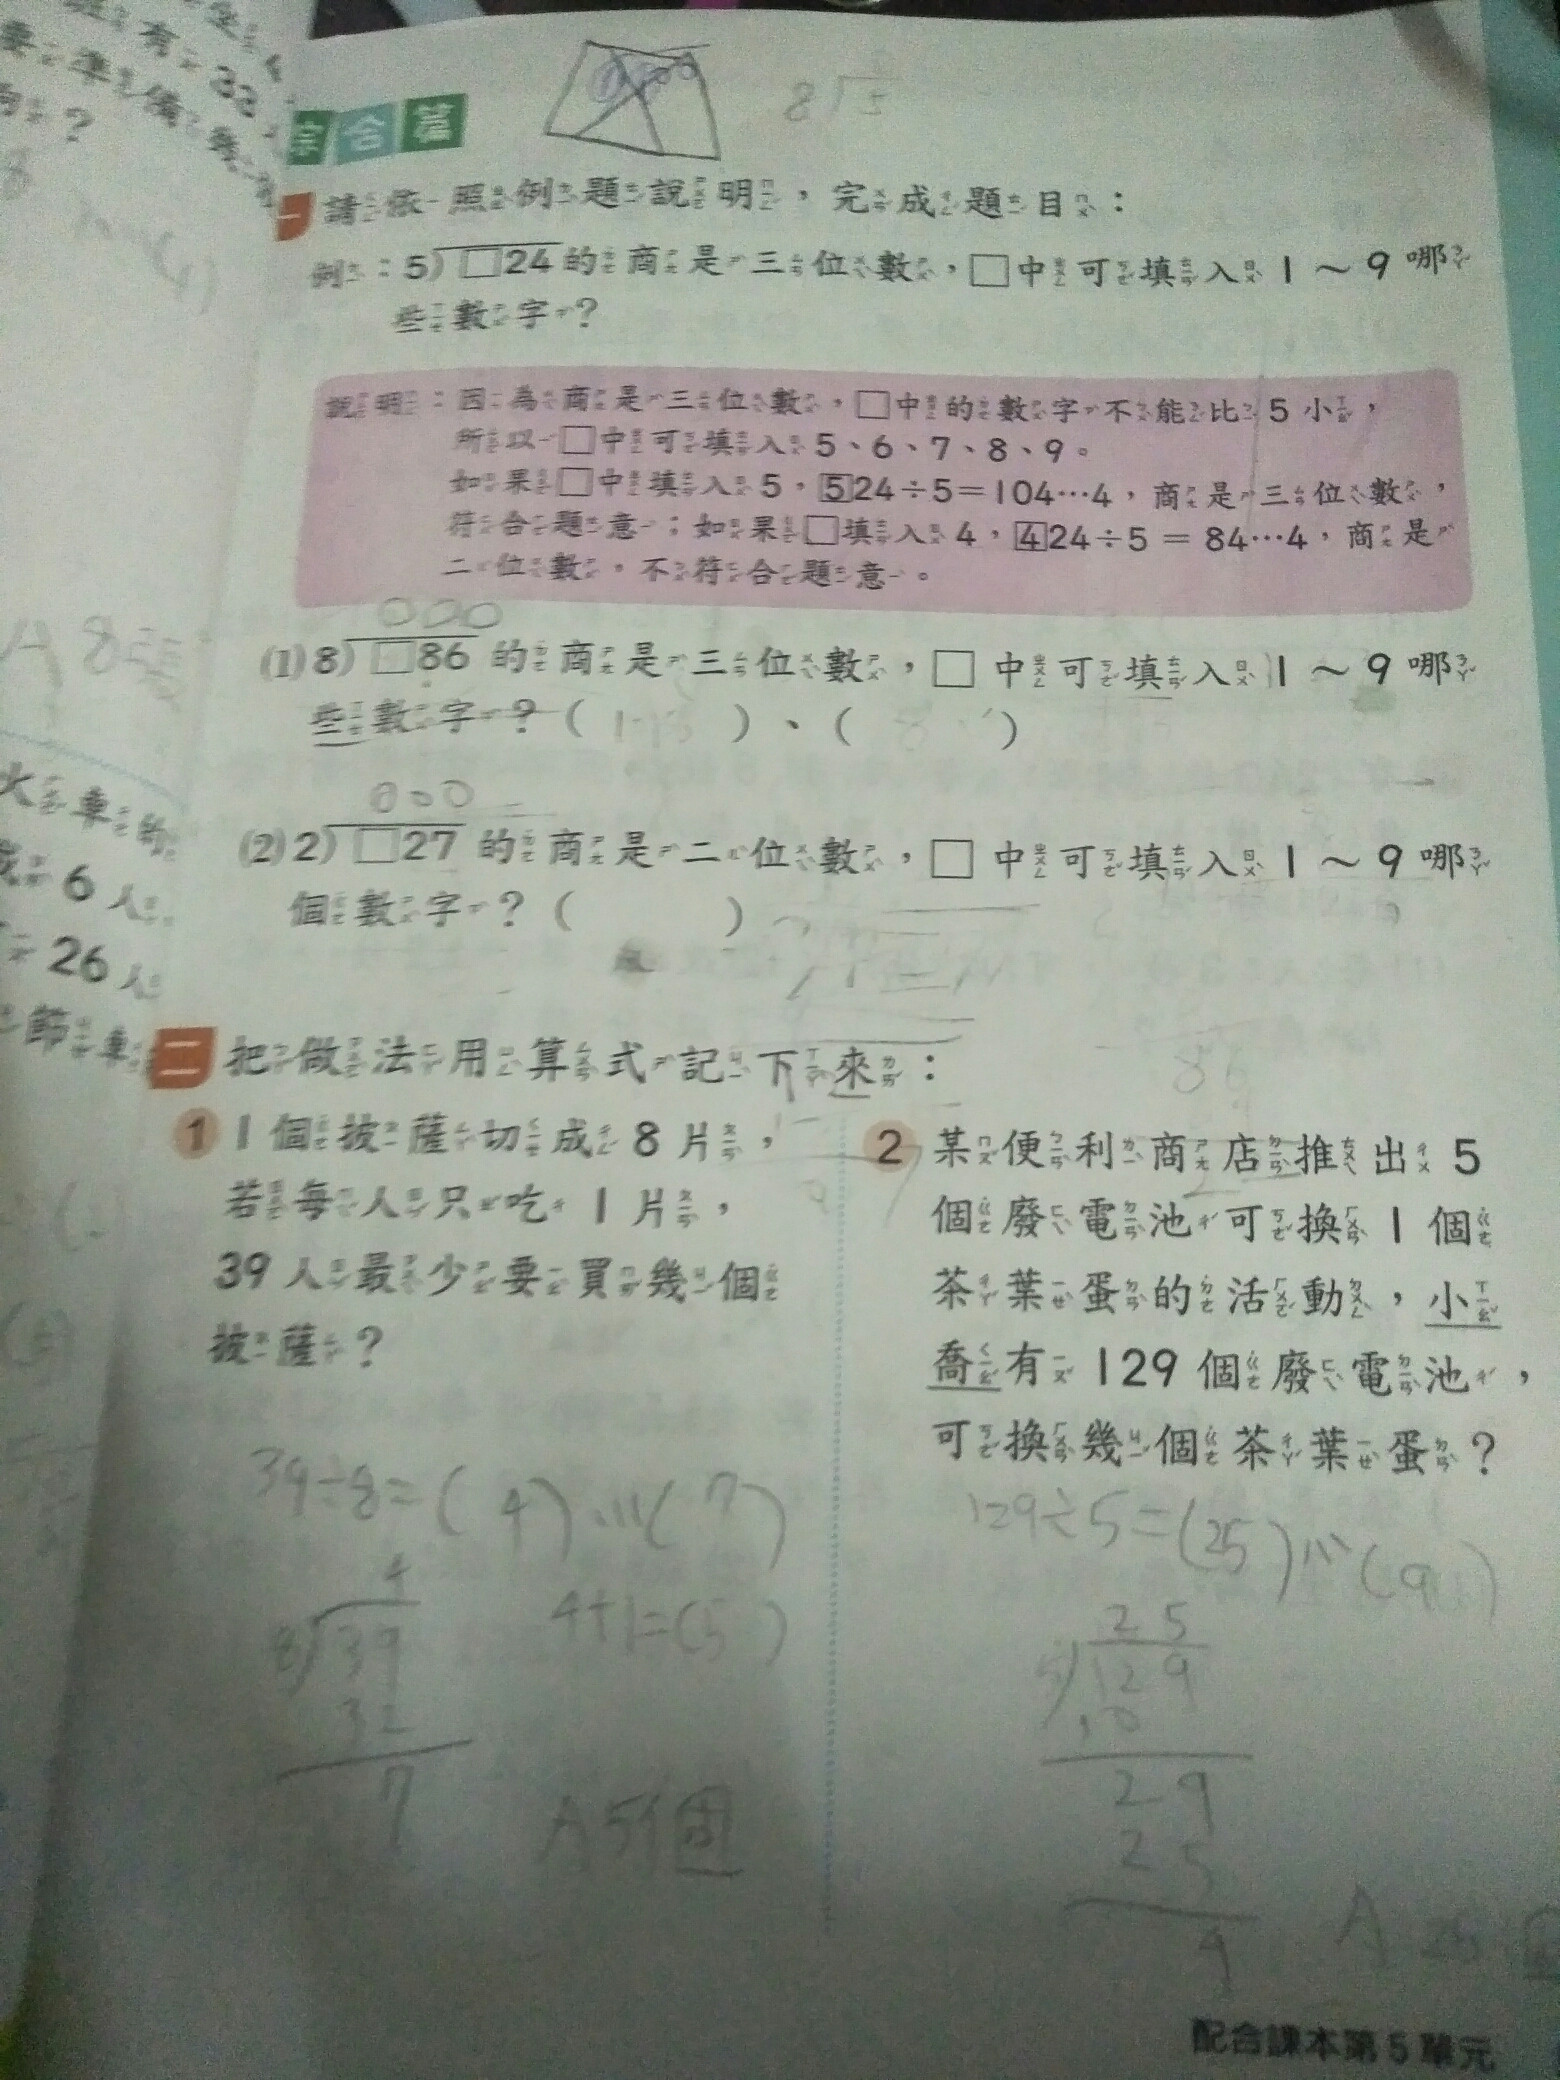 有 33
準備
？
綜合篇
8 5
一 請依照例題說明，完成題目：
例：5)□24 的商是三位數，□中可填入 1～9 哪
些數字？
說明：因為商是三位數，□中的數字不能比 5 小，
所以□中可填入 5、6、7、8、9。
如果□中填入 5，524÷5＝104…4，商是三位數，
符合題意；如果□填入 4，424÷5 = 84…4，商是
二位數，不符合題意。
000
(1) 8)□86 的商是三位數，□ 中可填入 1～9 哪
些數字？（ ）、（ 8 ）
000
(2) 2)□27 的商是二位數，□ 中可填入 1～9 哪
個數字？（ ）
A 8
火車
6 人
26 人
師
二 把做法用算式記下來：
86
1 1 個披薩切成 8 片，
若每人只吃 1 片，
39 人最少要買幾個
披薩？
39÷8=(4)…(7)
4
8)39
32
7
4+1=(5)
A 5個
2 某便利商店推出 5
個廢電池可換 1 個
茶葉蛋的活動，小
喬有 129 個廢電池，
可換幾個茶葉蛋？
129÷5=(25)…(9)
25
5)129
10
29
25
9
A
配合課本第 5 單元